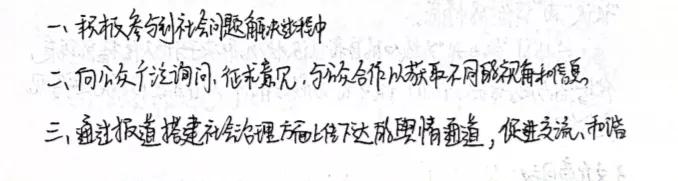 一、积极参与到社会问题解决过程中
二、向公众广泛询问、征求意见，与公众合作以获取不同的视角和信息
三、通过报道搭建社会治理方面上传下达的舆情通道，促进交流、和谐